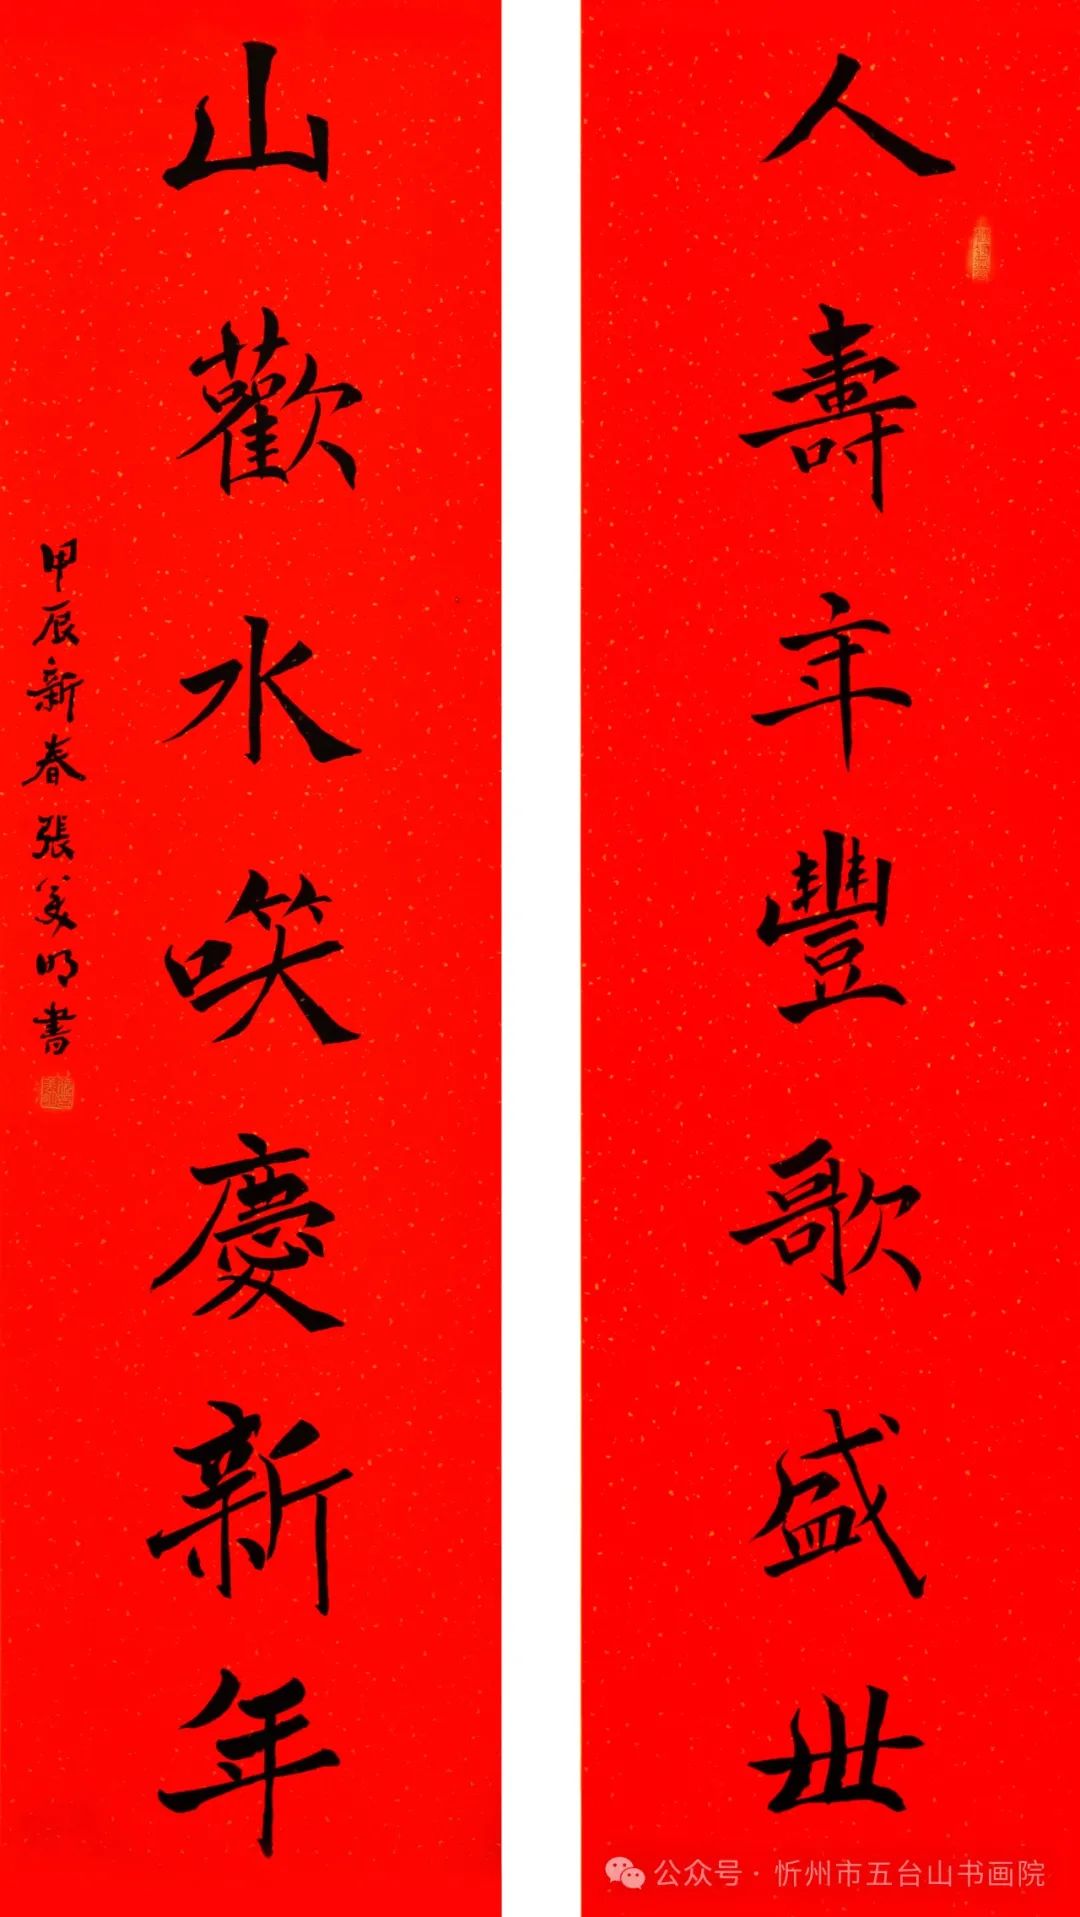 人壽年豐歌盛世
山歡水笑慶新年
甲辰新春張美明書
公众号·忻州市五台山书画院